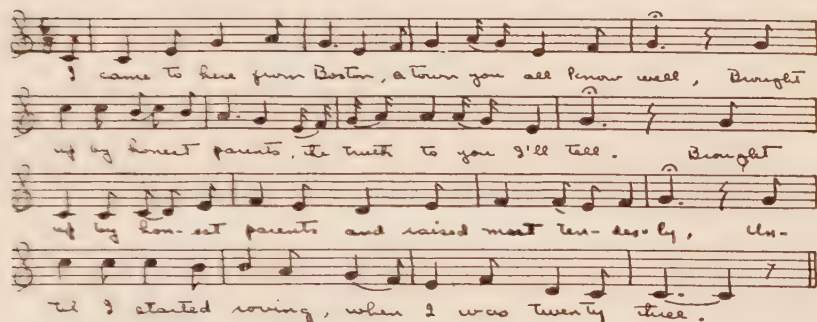 I came to here from Boston, a town you all know well, Brought
up by honest parents, the truth to you I'll tell. Brought
up by hon-est parents and raised most ten-der-ly, Un-
til I started roving, when I was twenty three.